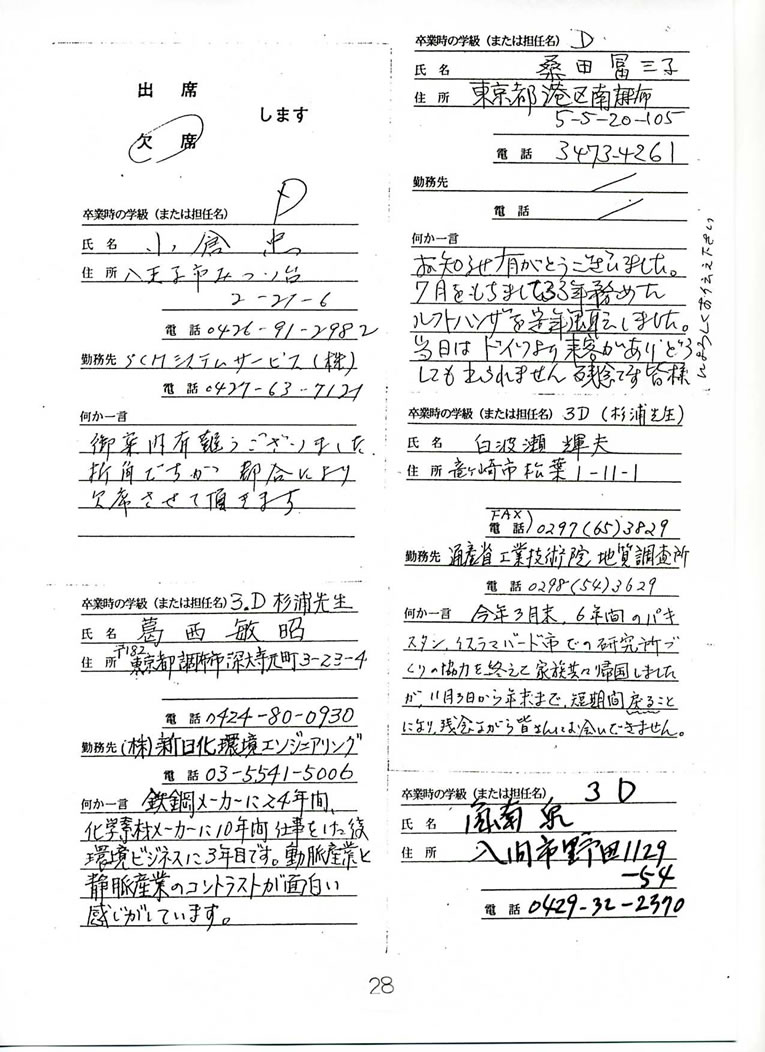 出席
します
欠席
卒業時の学級（または担任名） D
氏名 小倉 忠
住所 八王子市みつい台
2-21-6
電話 0426-91-2982
勤務先 SCHシステムサービス(株)
電話 0427-63-7121
何か一言
御案内有難うございました
折角ですが 都合により
欠席させて頂きます
卒業時の学級（または担任名） 3.D 杉浦先生
氏名 葛西敏昭
〒182
住所 東京都調布市深大寺元町3-23-4
電話 0424-80-0930
勤務先 (株)新日化環境エンジニアリング
電話 03-5541-5006
何か一言 鉄鋼メーカーに24年間、
化学素材メーカーに10年間仕事をした後
環境ビジネスに3年目です。動脈産業と
静脈産業のコントラストが面白い
感じがしています。
卒業時の学級（または担任名） D
氏名 桑田冨三子
住所 東京都港区南麻布
5-5-20-105
電話 3473-4261
勤務先
電話
何か一言
お知らせ有がとうございました。
7月をもちまして33年務めた
ルフトハンザを定年退職しました。
当日はドイツより来客がありどう
しても出られません 残念です 皆様
によろしくお伝え下さい
卒業時の学級（または担任名） 3D(杉浦先生)
氏名 白波瀬輝夫
住所 竜ヶ崎市松葉1-11-1
FAX
電話 0297(65)3829
勤務先 通産省工業技術院地質調査所
電話 0298(54)3629
何か一言 今年3月末、6年間のパキ
スタン、イスラマバード市での研究所づ
くりの協力を終えて家族共々帰国しました
が、11月3日から年末まで、短期間戻ること
になり、残念ながら皆さんにお会いできません。
卒業時の学級（または担任名） 3D
氏名
住所 入間市野田1129
-54
電話 0429-32-2370
28